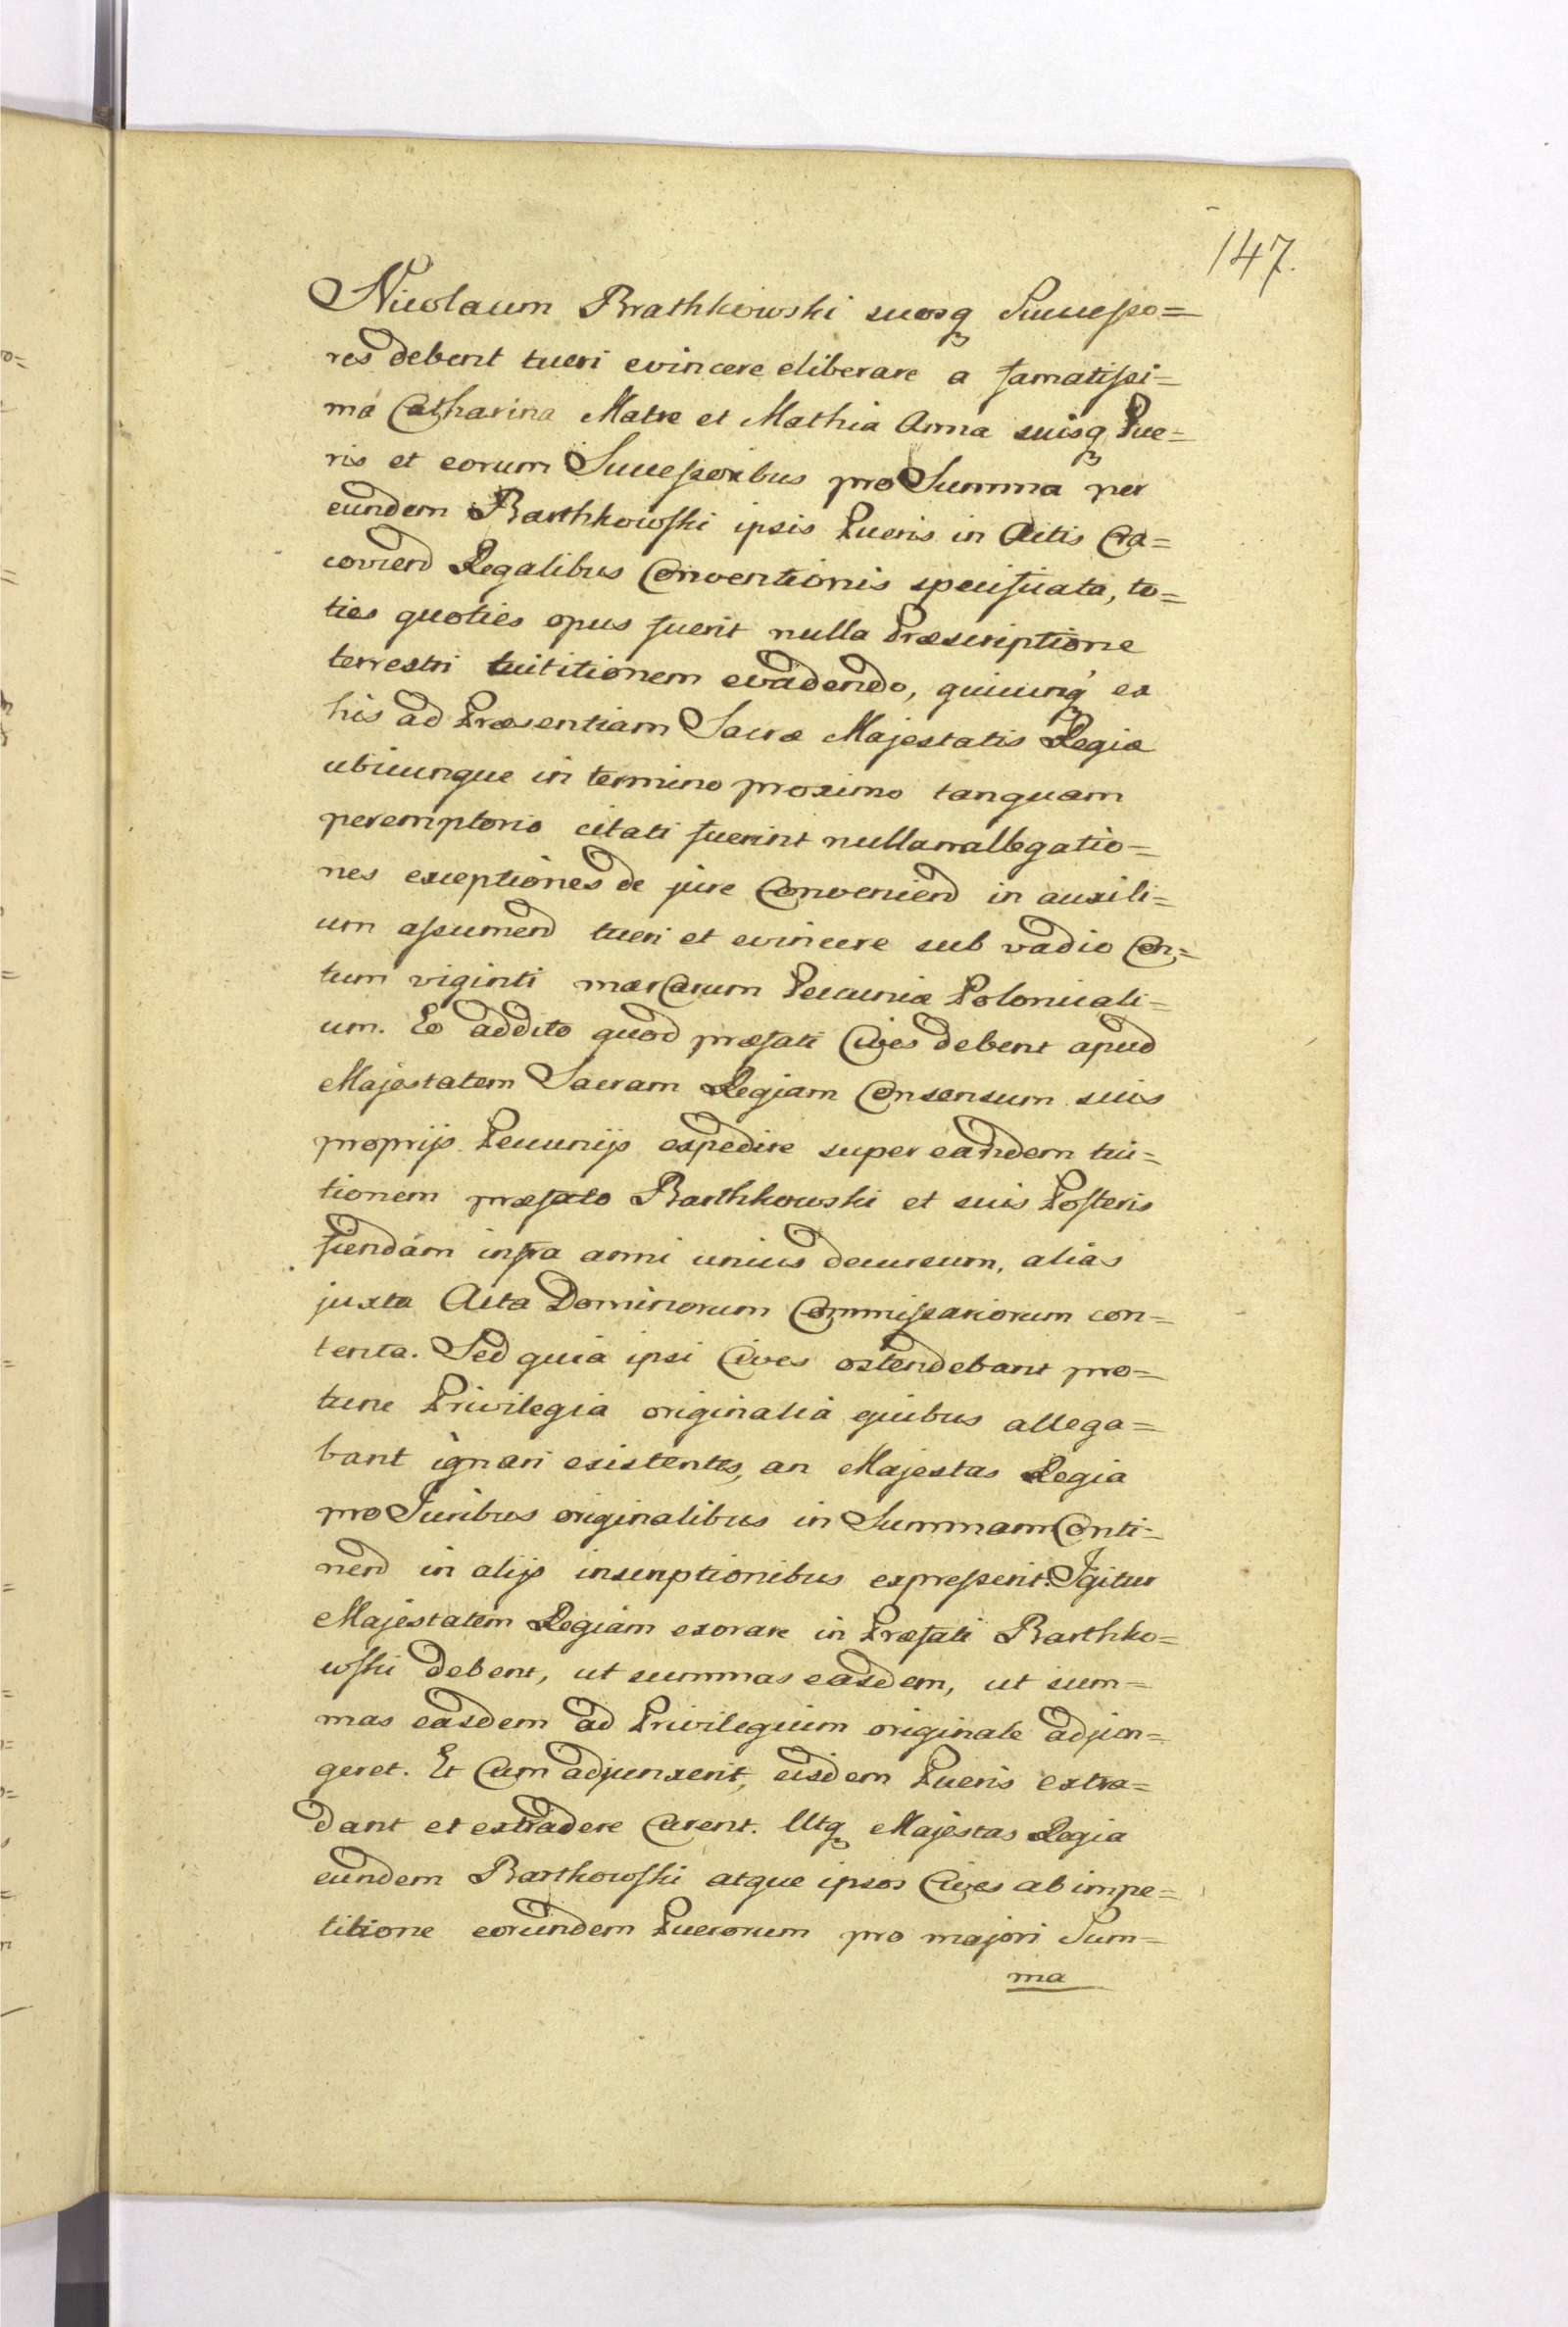 147.
Nicolaum Brathkowski suosq₃ Successo=
res debent tueri evincere eliberare a famatissi=
má Catharina Matre et Mathia Anna suisq₃ Pue=
ris et eorum Successoribus pro Summa per
eundem Barthkowski ipsis Pueris in Actis Cra=
coviend Regalibus Conventionis specificata, to=
ties quoties opus fuerit nulla Præscriptione
terrestri tuititionem evadendo, quicunq₃ ex
his ad Præsentiam Sacræ Majestatis Regiæ
ubicunque in termino proximo tanquam
peremptorio citati fuerint nullam allegatio=
nes exceptiones de jure Conveniend in auxili=
um assumend tueri et evincere sub vadio Cen=
tum viginti marCarum Pecuniæ Polonicali=
um. Eo addito quod præfati Cives debent apud
Majestatem Sacram Regiam Consensum suis
proprijs Pecunijs expedire super eandem tui=
tionem præfato Barthkowski et suis Posteris
fiendam infra anni unius decursum, alias
juxta Acta Dominorum Commissariorum con=
tenta. Sed quia ipsi Cives ostendebant pro=
tunc Privilegia originalia quibus allega=
bant ignari existentes, an Majestas Regia
pro Juribus originalibus in Summam Conti=
nend in alijs inscriptionibus expresserit. Igitur
Majestatem Regiam exorare in Præfati Barthko=
wski debent, ut summas easdem, ut sum=
mas easdem ad Privilegium originale adjun=
geret. Et Cum adjunxerit, eisdem Pueris extra=
dant et extradere Curent. Utq₃ Majestas Regia
eundem Barthowski atque ipsos Cives ab impe=
titione eorundem Puerorum pro majori Sum=
ma